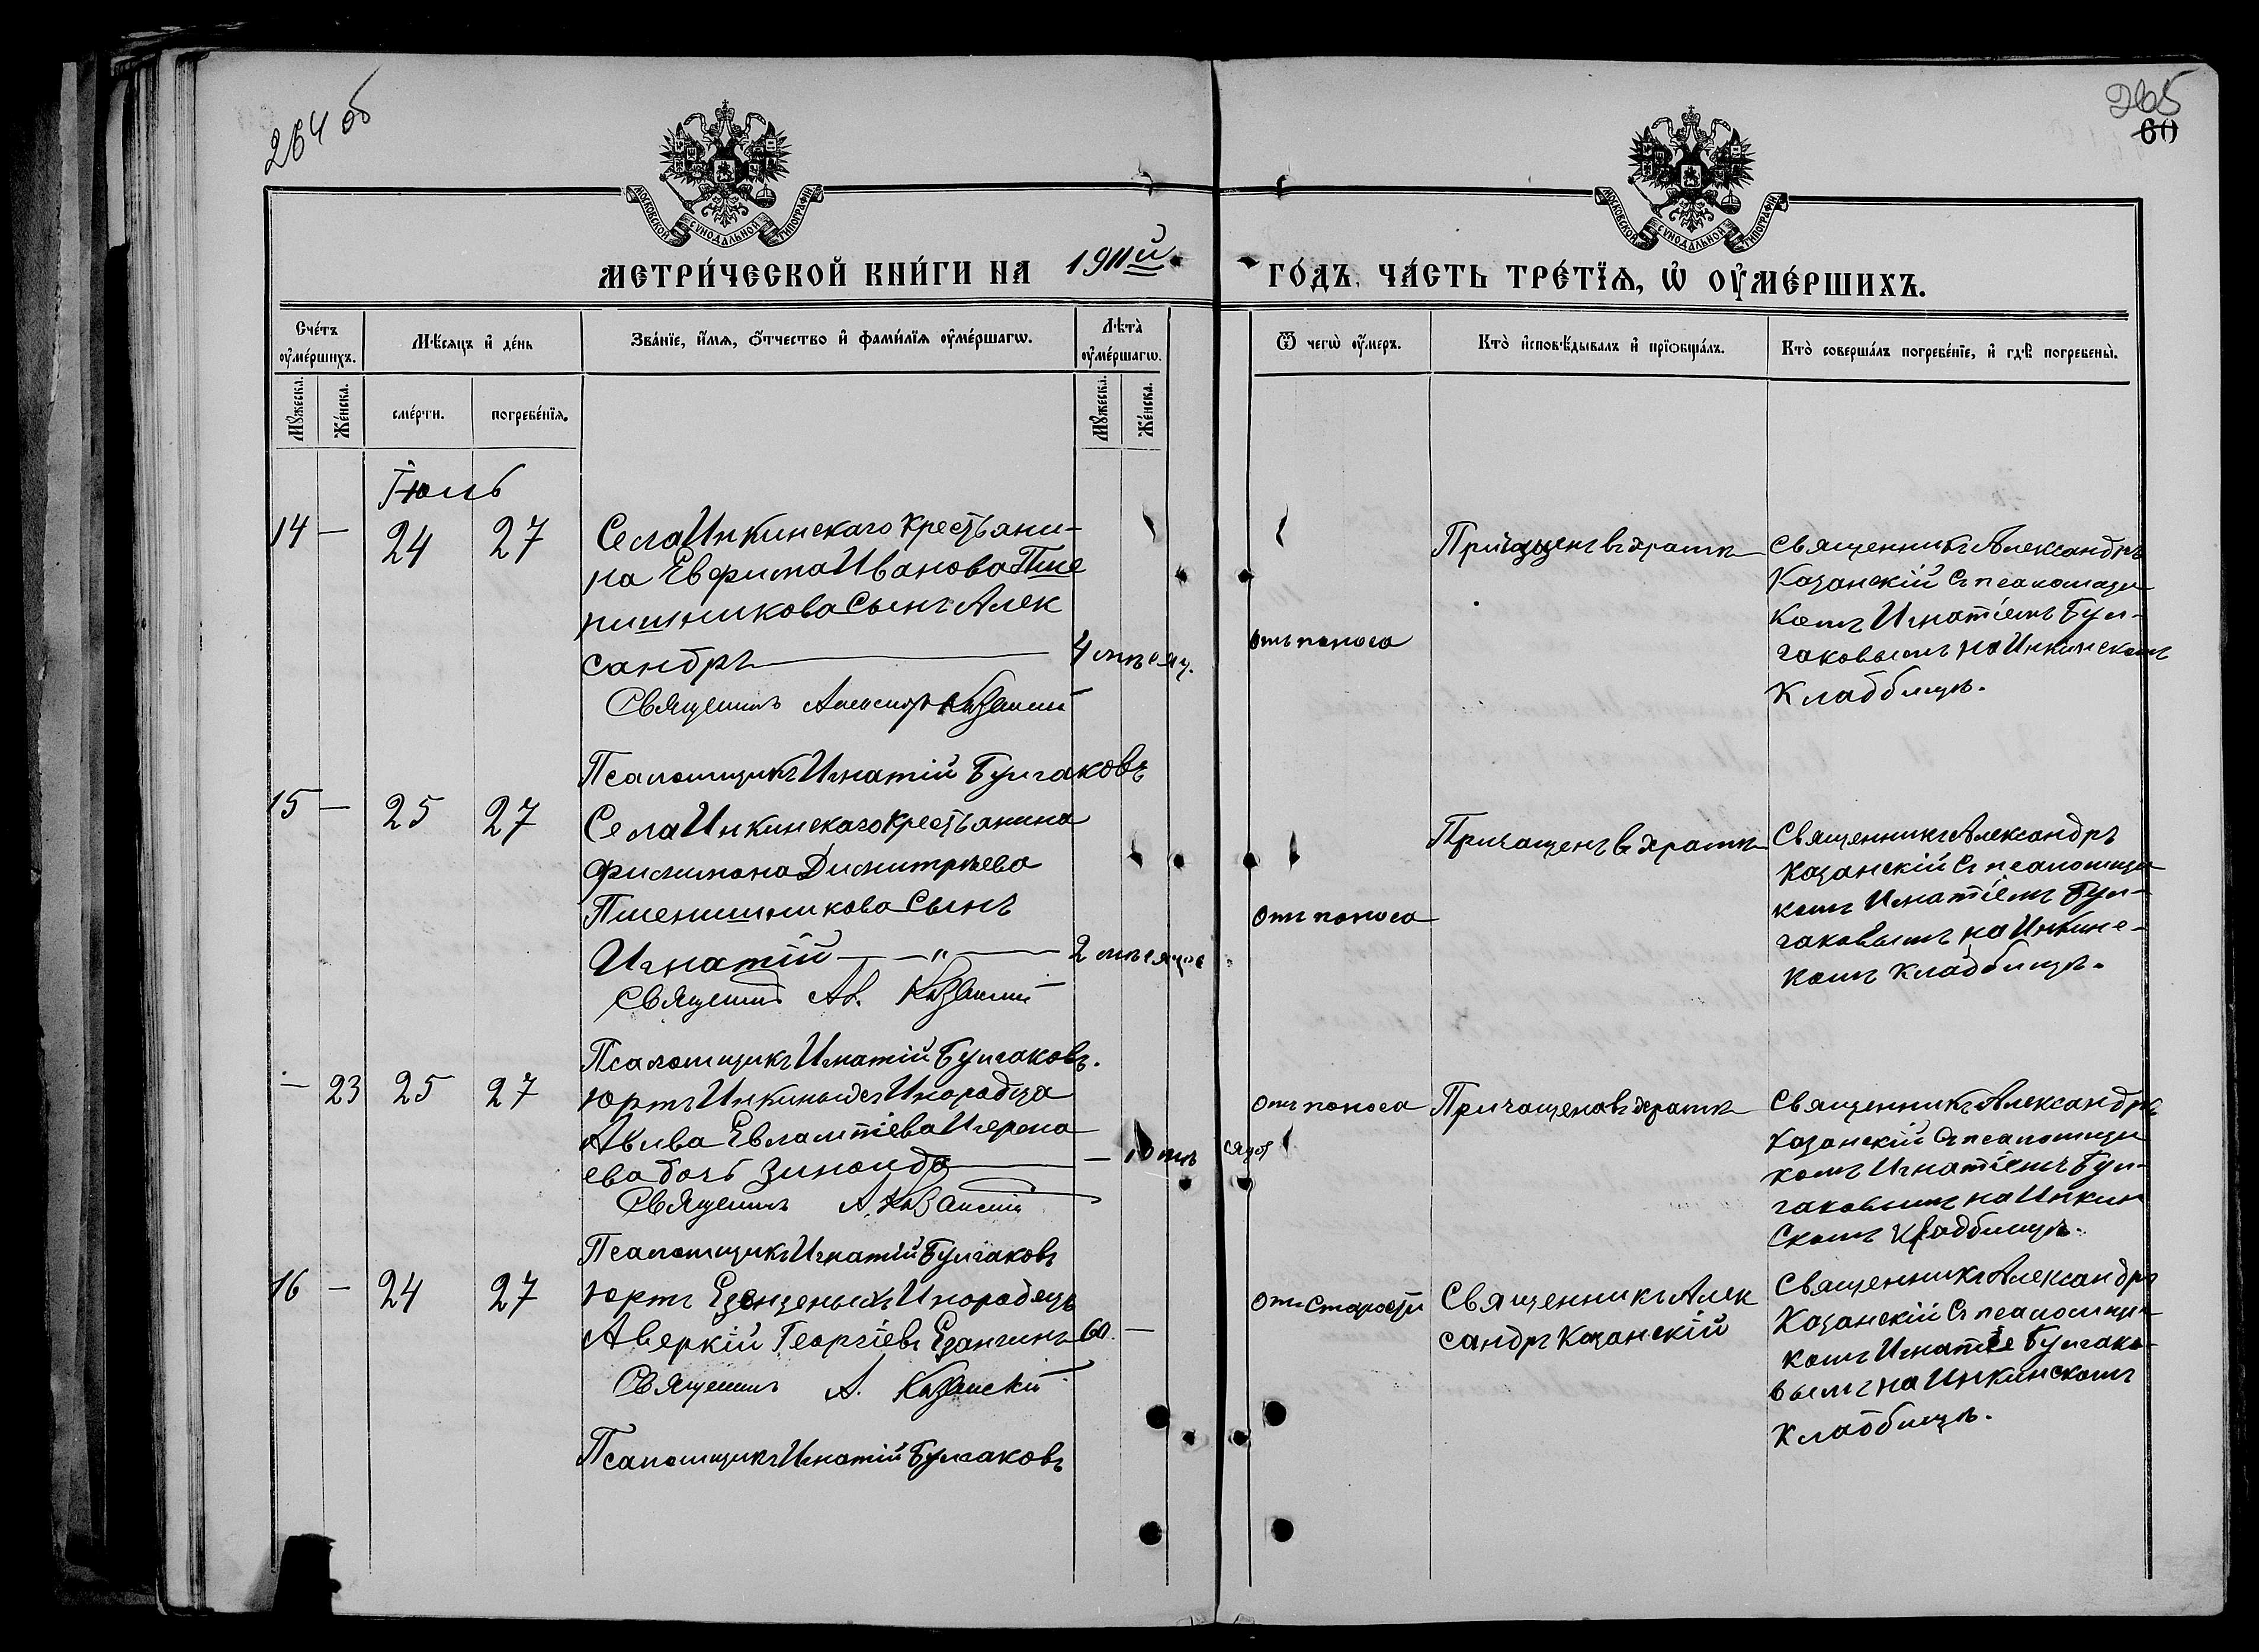 264 об
265
60
МОСКОВСКОЙ СѴНОДАЛЬНОЙ ТИПОГРАФІИ
МОСКОВСКОЙ СѴНОДАЛЬНОЙ ТИПОГРАФІИ
МЕТРИ́ЧЕСКОЙ КНИ́ГИ НА 1911й
ГО́ДЪ, ЧА́СТЬ ТРЕ́ТЇѦ, Ѡ҆ ОУ҆МЕ́РШИХЪ.
Сче́тъ оу҆ме́ршихъ.
Мѣ́сяцъ и҆ де́нь
Зва́нїе, и҆́мѧ, ѻ҆́тчество и҆ фами́лїѧ оу҆ме́ршагѡ.
Лѣ́та оу҆ме́ршагѡ.
Ѿ чегѡ̀ оу҆́меръ.
Кто̀ и҆сповѣ́дывалъ и҆ прїѡбща́лъ.
Кто̀ соверша́лъ погребе́нїе, и҆ гдѣ̀ погребены̀.
Мꙋ́жеска.
Же́нска.
сме́рти.
погребе́нїѧ.
Мꙋ́жеска.
Же́нска.
Іюль
14 — 24 27
Села Инкинскаго крестьяни-
на Евфима Иванова Пше
ничникова сынъ Алек
сандръ — 4 мѣсяц.
Священникъ Александр Казанскій
Псаломщикъ Игнатій Булгаковъ
отъ поноса
Причащенъ въ храмѣ
Священникъ Александръ
Казанскій съ псаломщи
комъ Игнатіемъ Бул-
гаковымъ на Инкинскомъ
кладбищѣ.
15 — 25 27
Села Инкинскаго крестьянина
Филимона Димитріева
Пшеничникова сынъ
Игнатій — „ — 2 мѣсяцев
Священникъ Ал. Казанскій
Псаломщикъ Игнатій Булгаковъ.
отъ поноса
Причащенъ въ храмѣ
Священникъ Александръ
Казанскій съ псаломщи
комъ Игнатіемъ Бул-
гаковымъ на Инкинс-
комъ кладбищѣ.
— 23 25 27
Юртъ Инкиныхъ Инородца
Авива Евлампіева
ева дочь Зинаида — — 10 мѣсяцев
Священникъ А. Казанскій
Псаломщикъ Игнатій Булгаковъ
отъ поноса
Причащена въ храмѣ
Священникъ Александръ
Казанскій съ псаломщи
комъ Игнатіемъ Бул-
гаковымъ на Инкин
скомъ кладбищѣ.
16 — 24 27
Юртъ Инородецъ
Аверкій Георгіевъ 60. —
Священникъ А. Казанскій
Псаломщикъ Игнатій Булгаковъ
отъ старости
Священникъ Алек
сандръ Казанскій
Священникъ Александръ
Казанскій съ псаломщи-
комъ Игнатіе Булгако-
вымъ на Инкинскомъ
кладбищѣ.